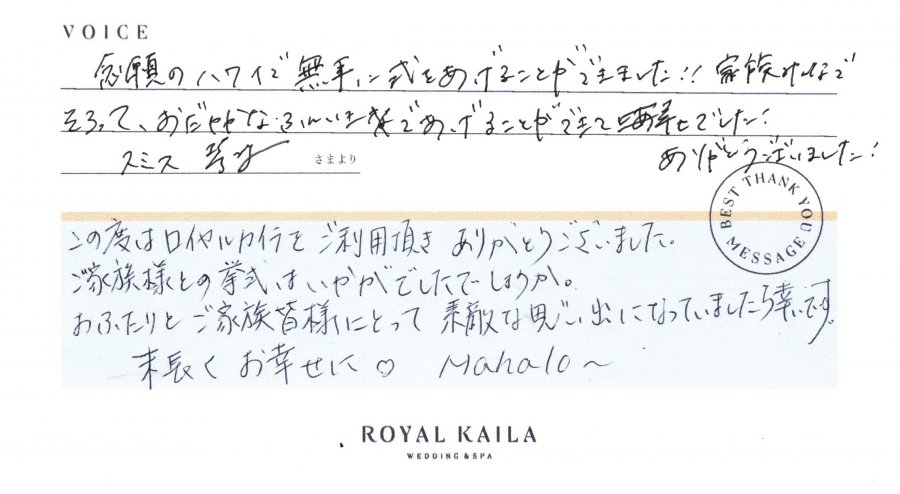 VOICE
念願のハワイで無事に式をあげることができました!! 家族みんなで
そろって、おだやかなふんいきであげることができて幸せでした!
スミス
さまより
ありがとうございました!
BEST THANK YOU MESSAGE
この度はロイヤルカイラをご利用頂きありがとうございました。
ご家族様との挙式はいかがでしたでしょうか。
おふたりとご家族皆様にとって素敵な思い出になっていましたら幸いです。
末長くお幸せに♡ Mahalo～
ROYAL KAILA
WEDDING & SPA